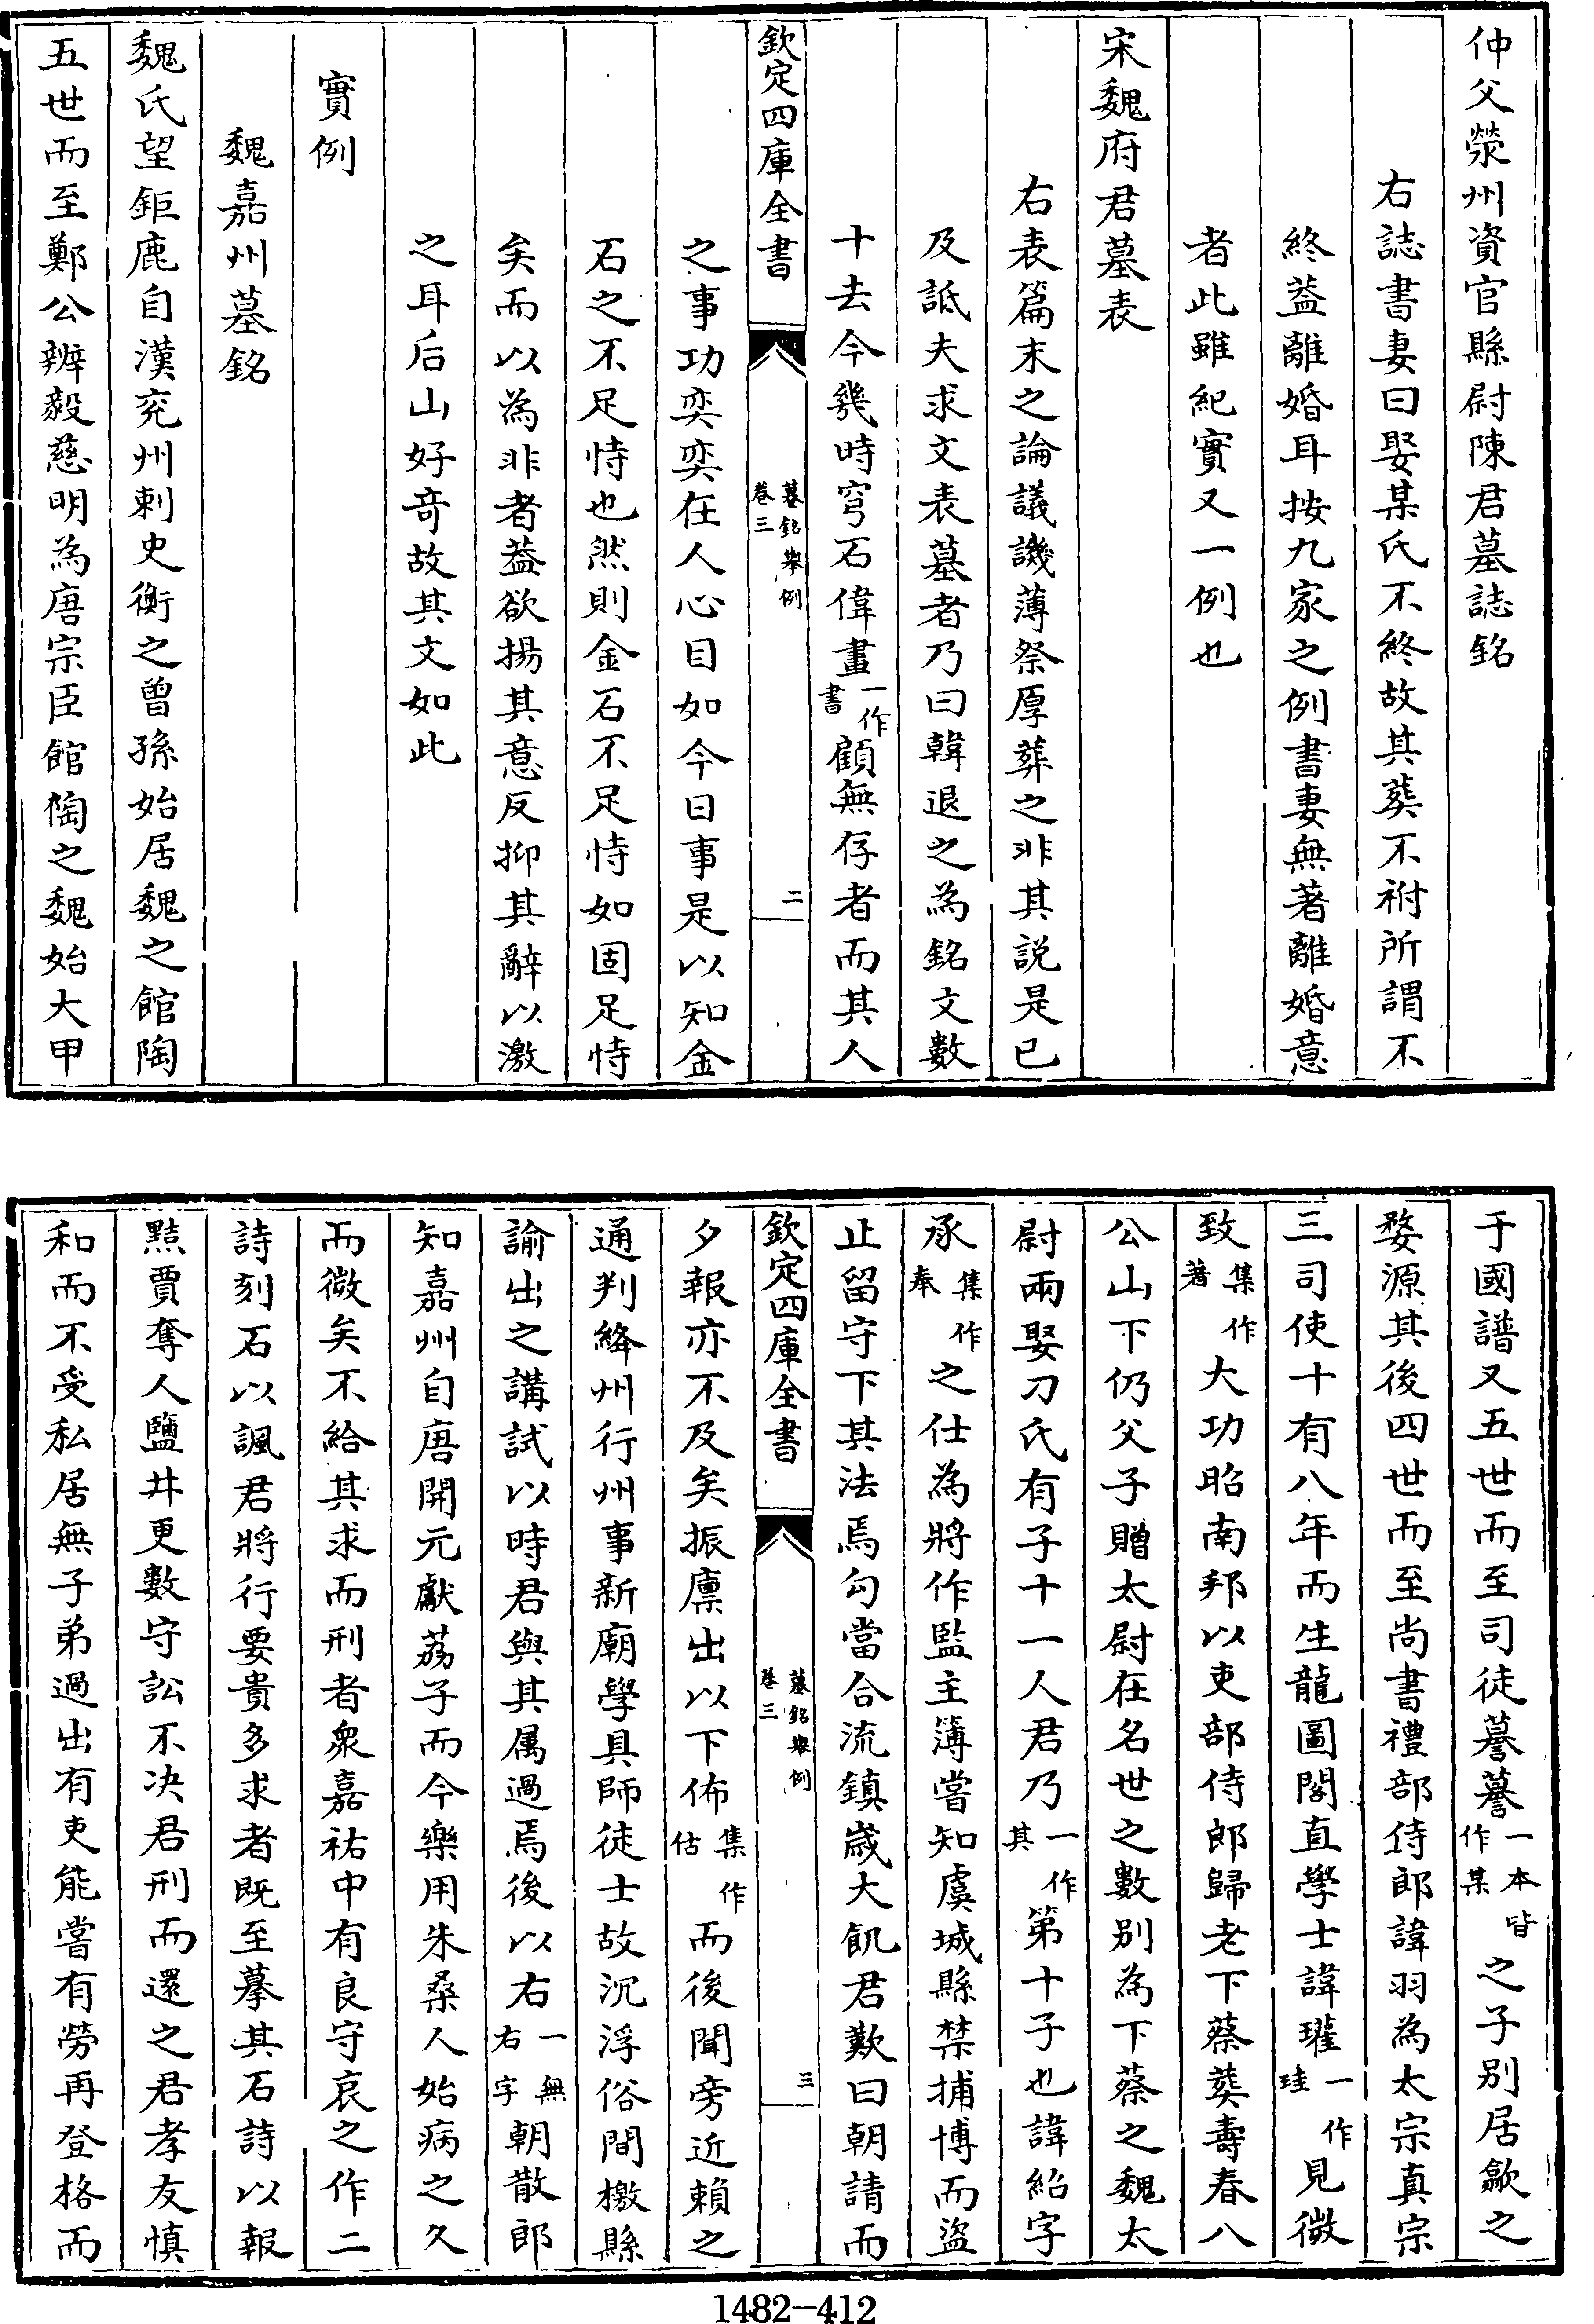 仲父滎州資官縣尉陳君墓誌銘
右誌書妻曰娶某氏不終故其葬不祔所謂不
終葢離婚耳按九家之例書妻無著離婚意
者此雖紀實又一例也
宋魏府君墓表
右表篇末之論議譏薄祭厚葬之非其説是已
及詆夫求文表墓者乃曰韓退之為銘文數
十去今幾時穹石偉畫一作書顧無存者而其人
欽定四庫全書
墓銘舉例
卷三
二
之事功奕奕在人心目如今日事是以知金
石之不足恃也然則金石不足恃如固足恃
矣而以為非者葢欲揚其意反抑其辭以激
之耳后山好竒故其文如此
實例
魏嘉州墓銘
魏氏望鉅鹿自漢兖州刺史衡之曾孫始居魏之館陶
五世而至鄭公辨毅慈明為唐宗臣館陶之魏始大甲
于國譜又五世而至司徒謩謩一本皆作某之子别居歙之
婺源其後四世而至尚書禮部侍郎諱羽為太宗真宗
三司使十有八年而生龍圖閣直學士諱瓘一作珪見微
致集作著大功昭南邦以吏部侍郎歸老下蔡葬壽春八
公山下仍父子贈太尉在名世之數别為下蔡之魏太
尉兩娶刀氏有子十一人君乃一作其第十子也諱紹字
承集作奉之仕為將作監主簿嘗知虞城縣禁捕博而盜
止留守下其法焉勾當合流鎮歲大飢君歎曰朝請而
欽定四庫全書
墓銘舉例
卷三
三
夕報亦不及矣振廩出以下佈集作估而後聞旁近賴之
通判絳州行州事新廟學具師徒士故沉浮俗間檄縣
諭出之講試以時君與其属過焉後以右一無右字朝散郎
知嘉州自唐開元獻荔子而今樂用朱桑人始病之久
而微矣不給其求而刑者衆嘉祐中有良守哀之作二
詩刻石以諷君將行要貴多求者既至摹其石詩以報
黠賈奪人鹽井更數守訟不决君刑而還之君孝友慎
和而不受私居無子弟過出有吏能嘗有勞再登格而
1482—412